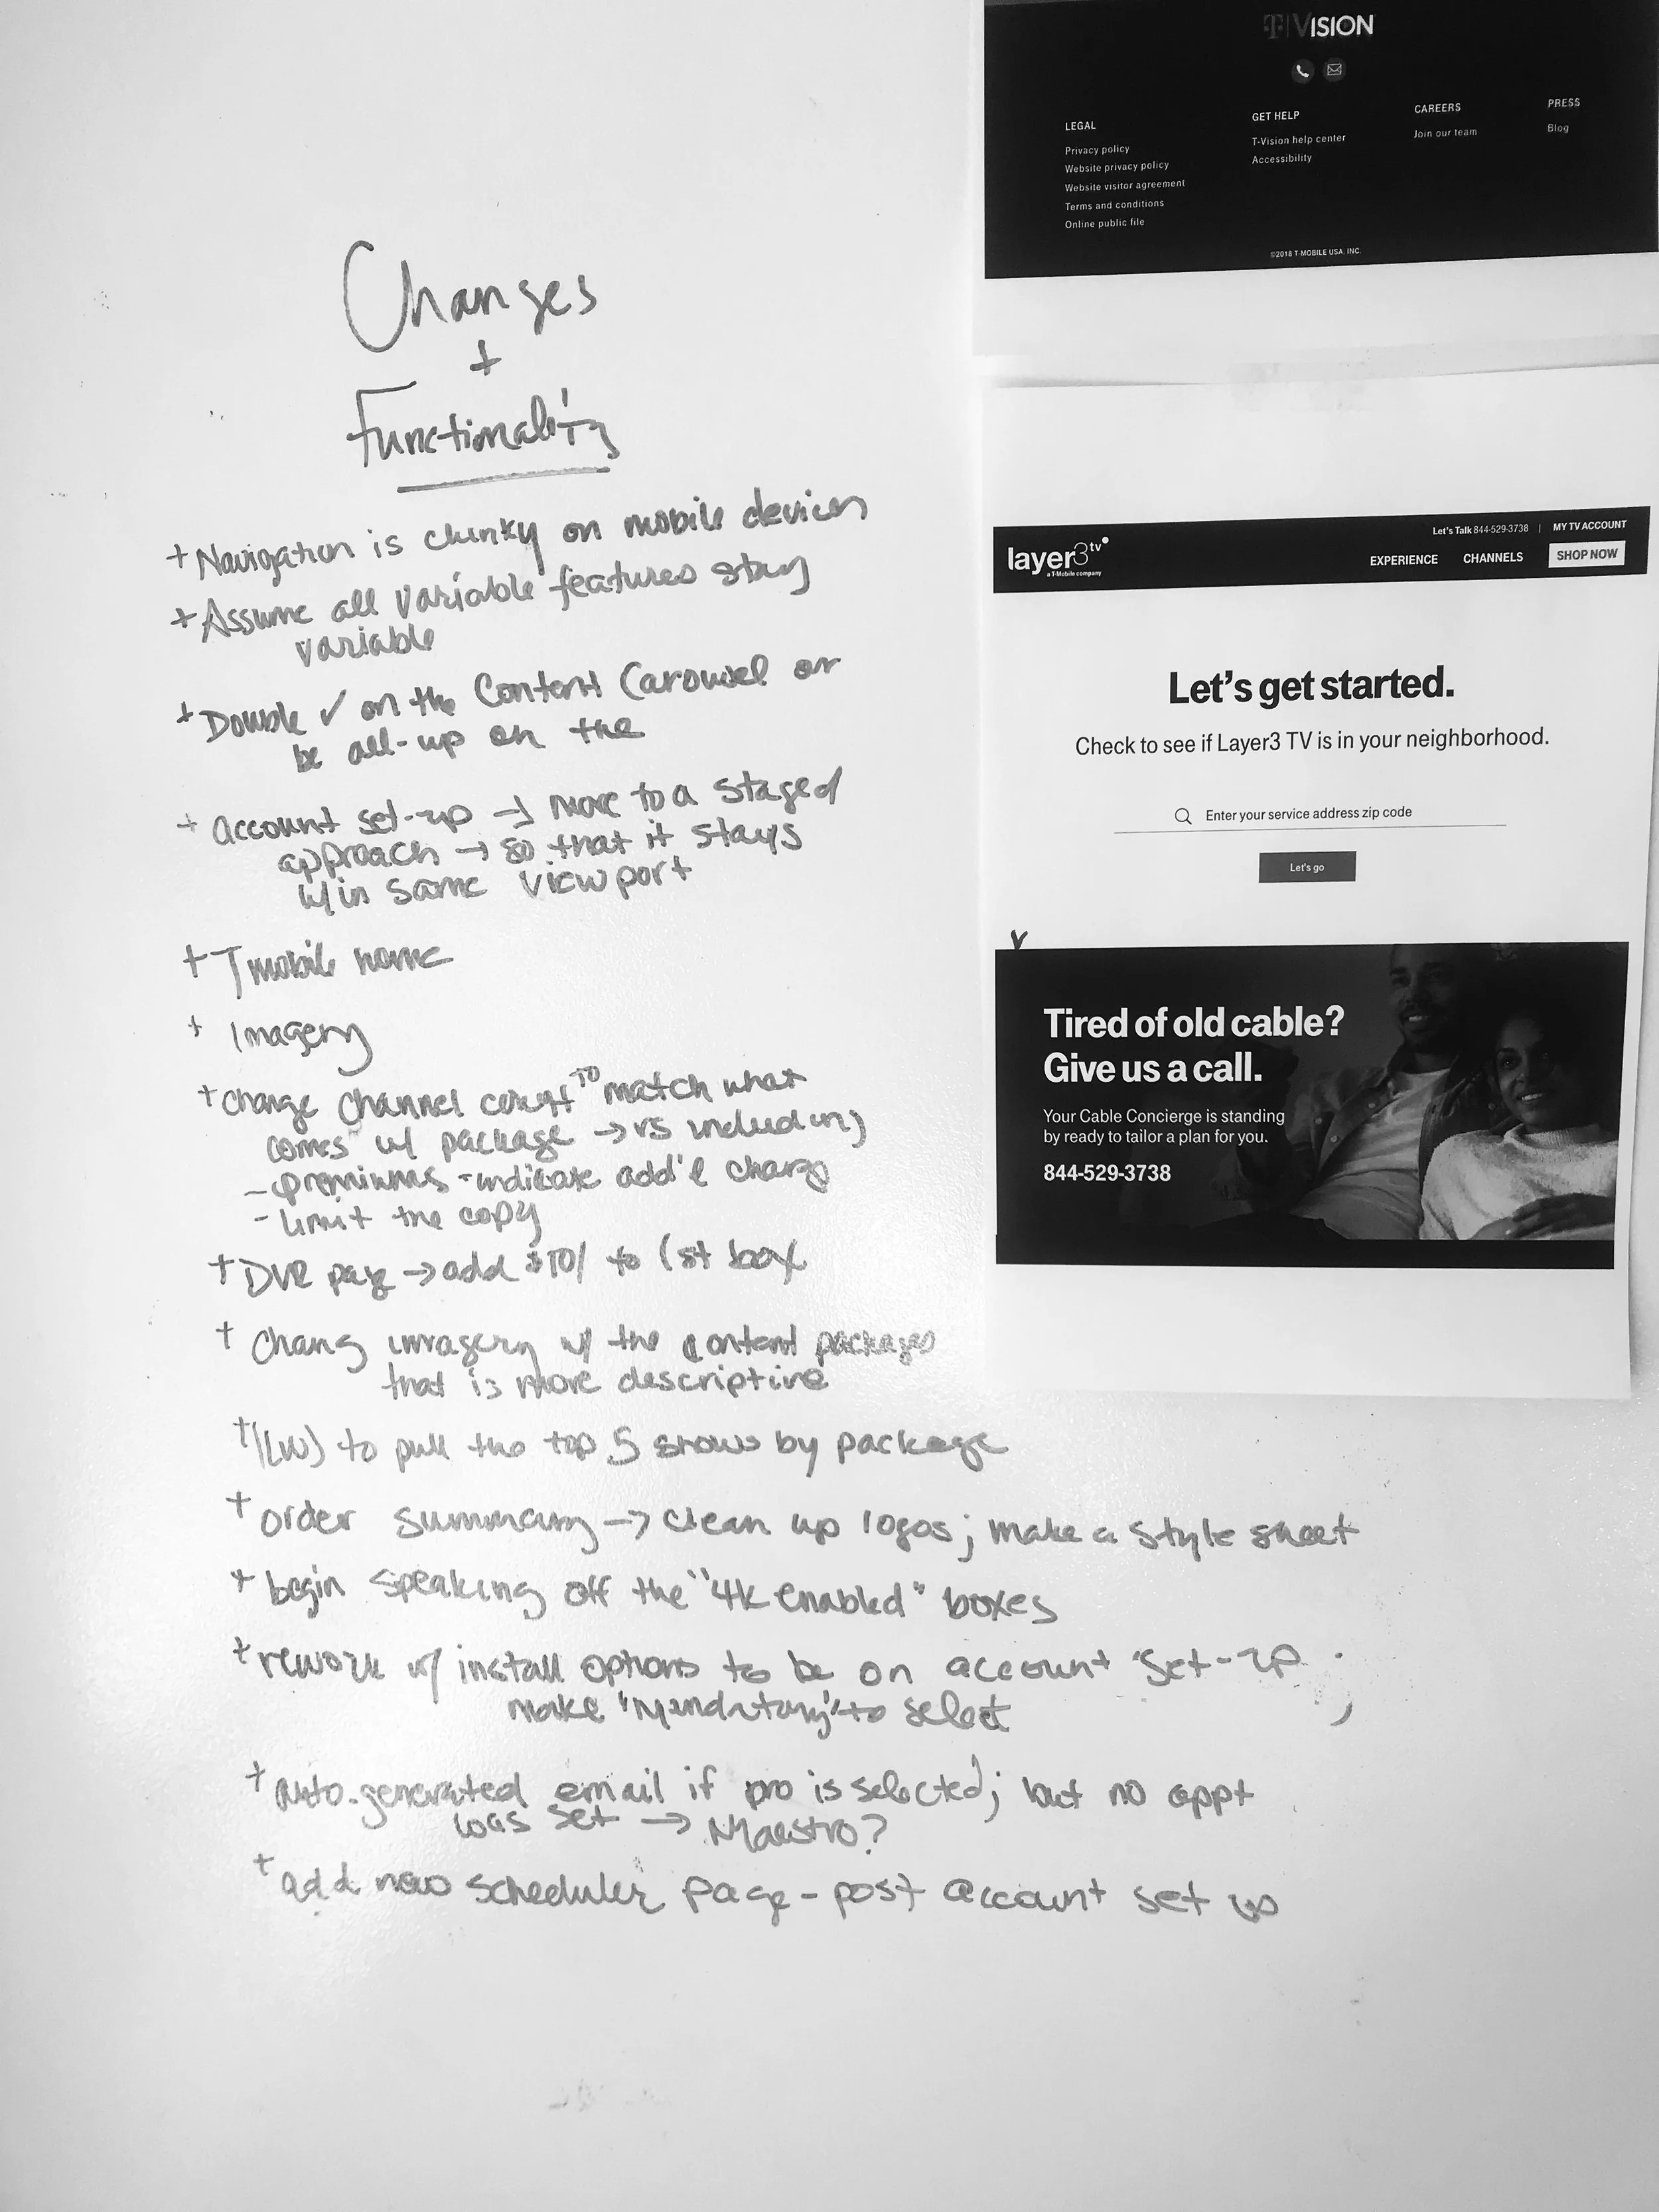 Changes
+
Functionality
+ Navigation is clunky on mobile devices
+ Assume all variable features stay
variable
+ Double ✓ on the Content Carousel or
be all-up on the
+ account set-up → move to a staged
approach → so that it stays
w/in same viewport
+ Tmobile name
+ Imagery
+ change channel count TO match what
comes w/ package → vs including
- premiums - indicate add'l charg
- limit the copy
+ DVR page → add $10/ to 1st box
+ Chang imagery w/ the content packages
that is more descriptive
+ (LW) to pull the top 5 shows by package
+ order summary → clean up logos; make a style sheet
+ begin speaking off the "4k enabled" boxes
+ rework w/ install options to be on account set-up;
make "Mandatory" to select
+ auto-generated email if pro is selected; but no appt
was set → Maestro?
+ add new scheduler page - post account set up
T|VISION
LEGAL
Privacy policy
Website privacy policy
Website visitor agreement
Terms and conditions
Online public file
GET HELP
T-Vision help center
Accessibility
CAREERS
Join our team
PRESS
Blog
©2018 T-MOBILE USA, INC.
Let's Talk 844-529-3738 | MY TV ACCOUNT
layer3 tv
a T-Mobile company
EXPERIENCE CHANNELS SHOP NOW
Let's get started.
Check to see if Layer3 TV is in your neighborhood.
Enter your service address zip code
Let's go
Tired of old cable?
Give us a call.
Your Cable Concierge is standing
by ready to tailor a plan for you.
844-529-3738